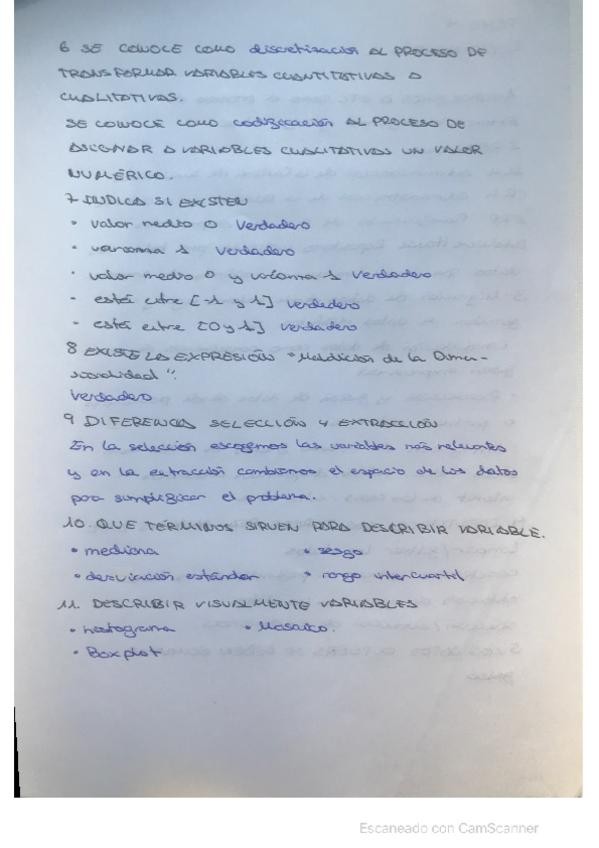 6 SE CONOCE COMO discretización AL PROCESO DE
TRANSFORMAR VARIABLES CUANTITATIVAS A
CUALITATIVAS.
SE CONOCE COMO codificación AL PROCESO DE
ASIGNAR A VARIABLES CUALITATIVAS UN VALOR
NUMÉRICO.
7 INDICA SI EXISTEN
• valor medio 0 Verdadero
• varianza 1 Verdadero
• valor medio 0 y varianza 1 Verdadero
• está entre [-1 y 1] verdadero
• está entre [0 y 1] verdadero
8 EXISTE LA EXPRESIÓN "Maldición de la Dimen-
sionalidad".
Verdadero
9 DIFERENCIA SELECCIÓN Y EXTRACCIÓN
En la selección escogemos las variables más relevantes
y en la extracción cambiamos el espacio de los datos
para simplificar el problema.
10. QUE TÉRMINOS SIRVEN PARA DESCRIBIR VARIABLE.
• mediana • sesgo
• desviación estándar • rango intercuartil
11. DESCRIBIR VISUALMENTE VARIABLES
• histograma • Mosaico.
• Boxplot
Escaneado con CamScanner